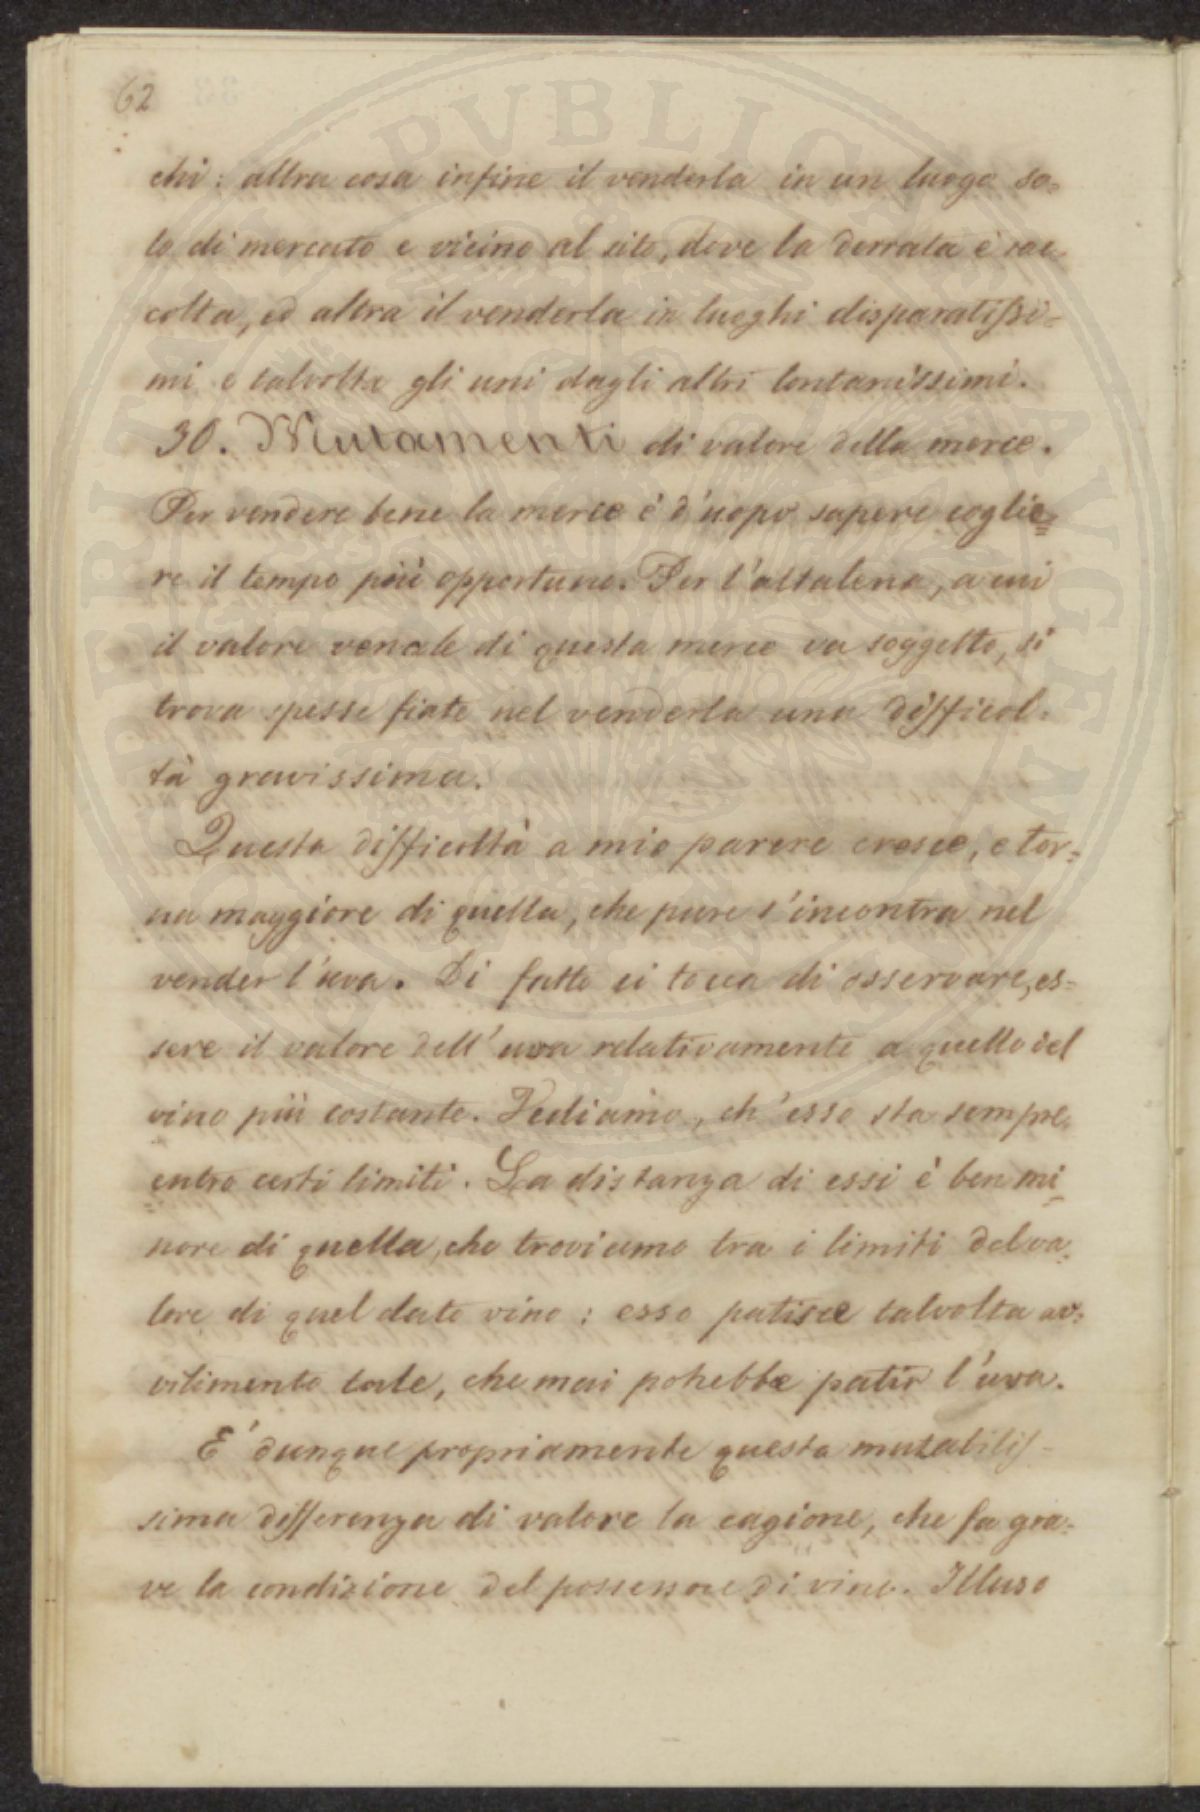 62
chi: altra cosa infine il venderla in un luogo so=
lo di mercato e vicino al sito, dove la derrata è rac=
colta, ed altra il venderla in luoghi disparatissi=
mi e talvolta gli uni dagli altri lontanissimi.
30. Mutamenti di valore della merce.
Per vendere bene la merce è d'uopo sapere coglie=
re il tempo più opportuno. Per l'altalena, a cui
il valore venale di questa merce va soggetto, si
trova spesse fiate nel venderla una difficol=
tà gravissima.
Questa difficoltà a mio parere cresce, e tor=
na maggiore di quella, che pure s'incontra nel
vender l'uva. Di fatto ci tocca di osservare, es=
sere il valore dell'uva relativamente a quello del
vino più costante. Vediamo, ch'esso sta sempre
entro certi limiti. La distanza di essi è ben mi=
nore di quella, che troviamo tra i limiti del va=
lore di quel dato vino: esso patisce talvolta av=
vilimento tale, che mai potrebbe patir l'uva.
E' dunque propriamente questa mutabilis=
sima differenza di valore la cagione, che fa gra=
ve la condizione del possessore di vino. Illuso